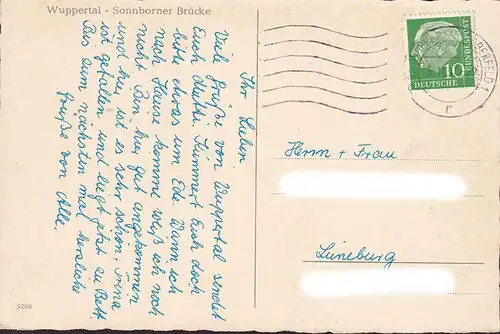 Wuppertal - Sonnborner Brücke
Ihr Lieben
Viele Grüße von Wuppertal sendet
Euch Mutti. Kümmert Euch doch
bitte etwas um Ede. Wann ich
nach Hause komme weiß ich noch
nicht. Bin hier gut angekommen
und hier ist es sehr schön. Irena
ist gefallen und liegt jetzt zu Bett
Bis zum nächsten mal herzliche
Grüße von Alle.
10
DEUTSCHE
BUNDESPOST
Herrn + Frau
Lüneburg
5266